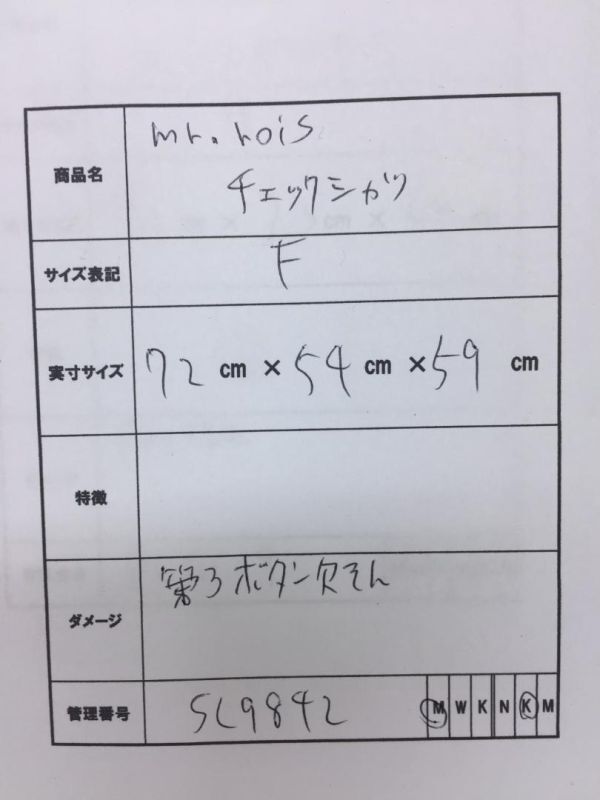 商品名 mr.rois
チェックシャツ
サイズ表記 F
実寸サイズ 72 cm × 54 cm × 59 cm
特徴
ダメージ 第3ボタン欠そん
管理番号 SL9842 M W K N K M